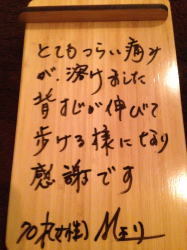 とてもつらい痛み
が、溶けました
背すじが伸びて
歩ける様になり
感謝です
70才(女性)